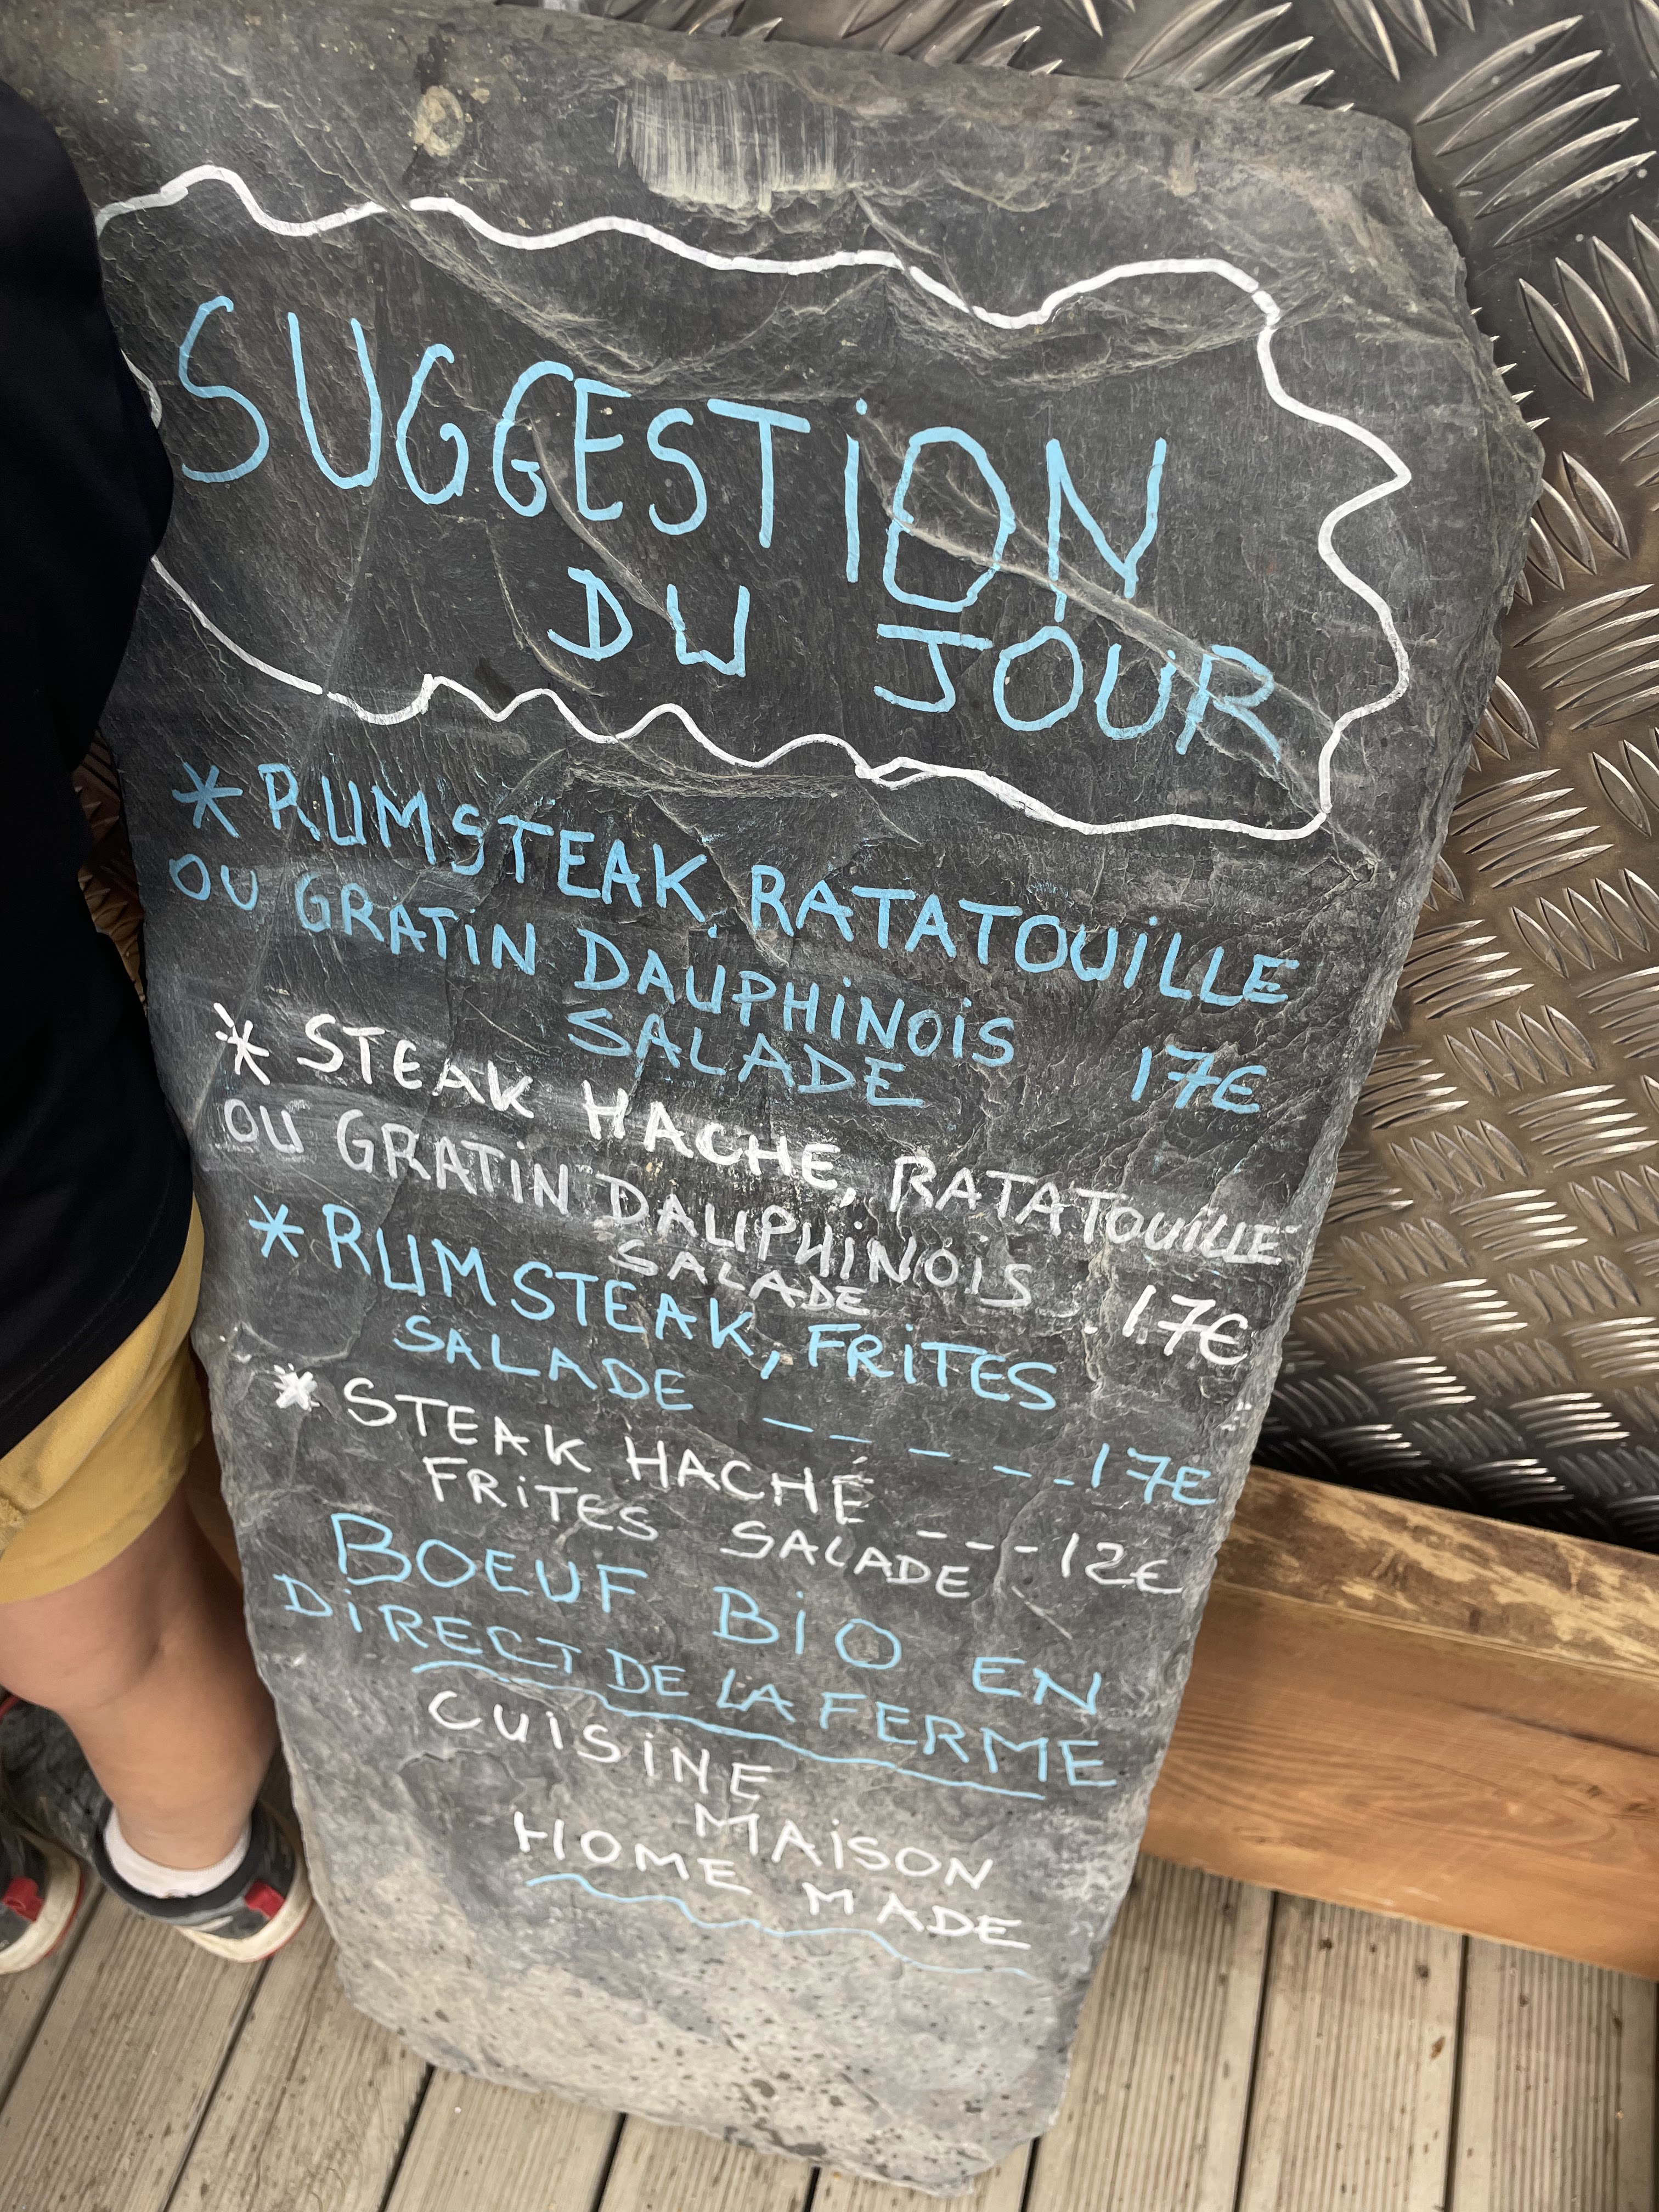 SUGGESTION
DU JOUR
* RUMSTEAK, RATATOUILLE
OU GRATIN DAUPHINOIS
SALADE 17€
* STEAK HACHE, RATATOUILLE
OU GRATIN DAUPHINOIS
SALADE . 17€
* RUMSTEAK, FRITES
SALADE _ _ _ _ _ _ 17€
* STEAK HACHÉ
FRITES SALADE _ _ _ _ 12€
BOEUF BIO EN
DIRECT DE LA FERME
CUISINE
MAISON
HOME MADE